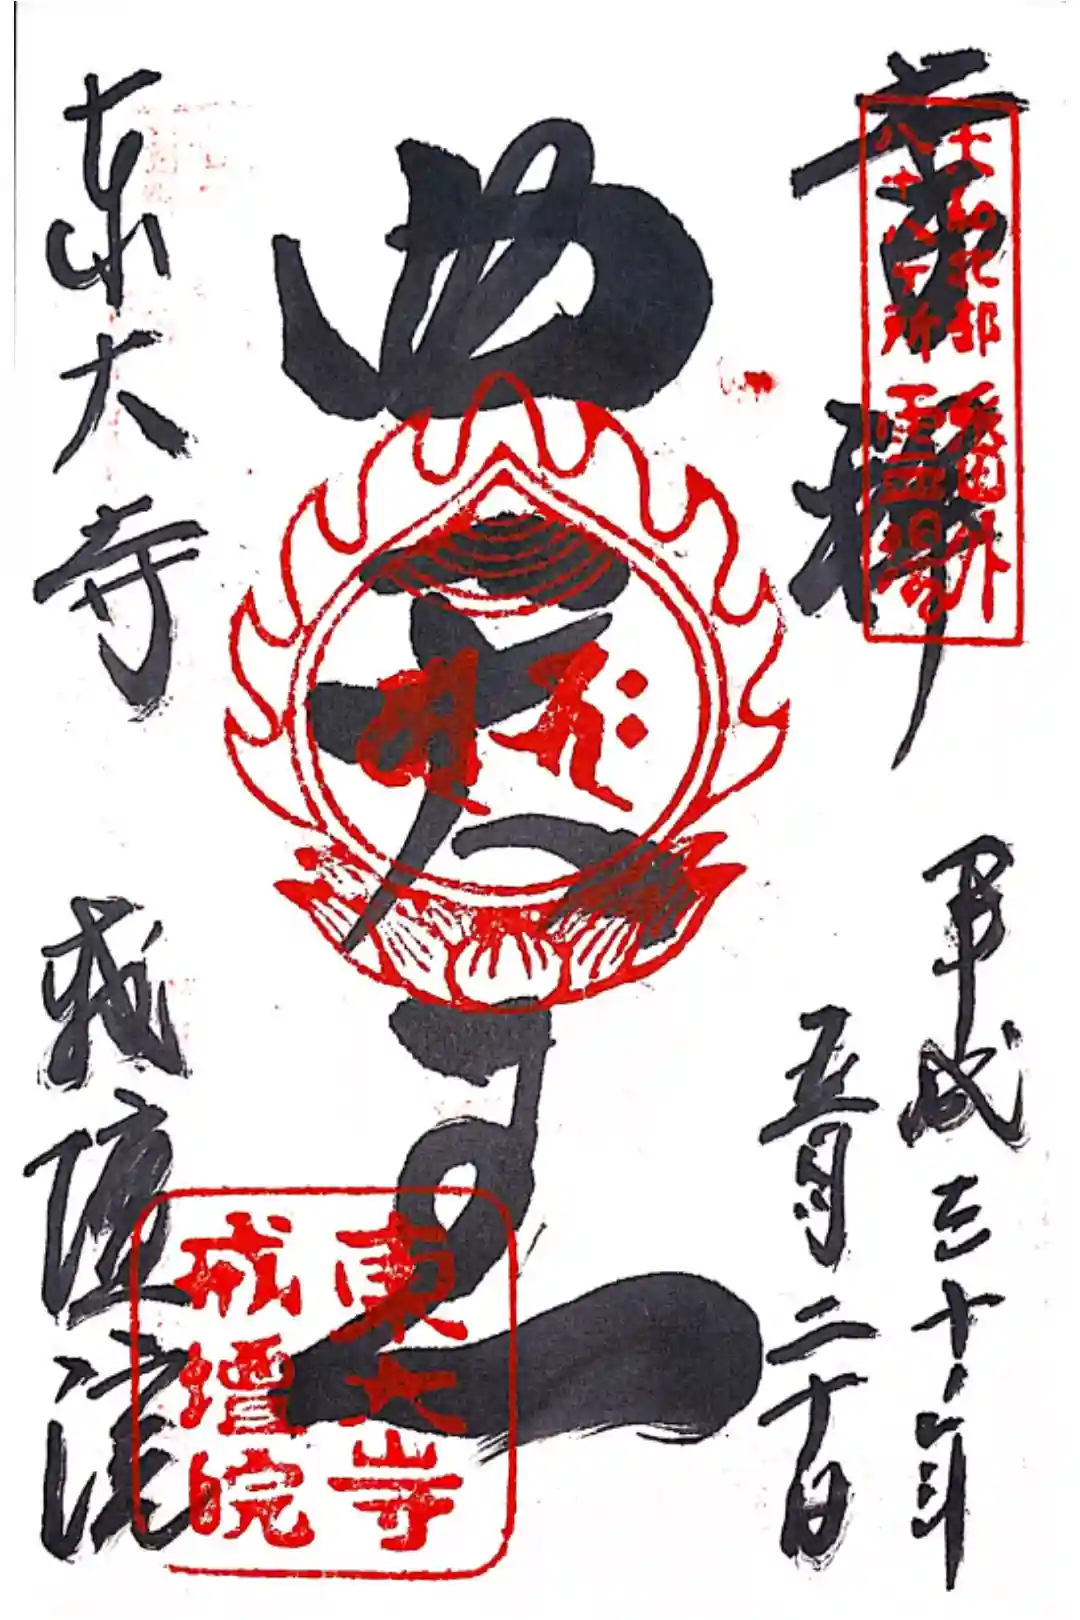 奉拝
大和北部番外
八十八ヶ所霊場
平成三十年
五月二十日
四天王
東大寺
戒壇院
東大寺 戒壇院